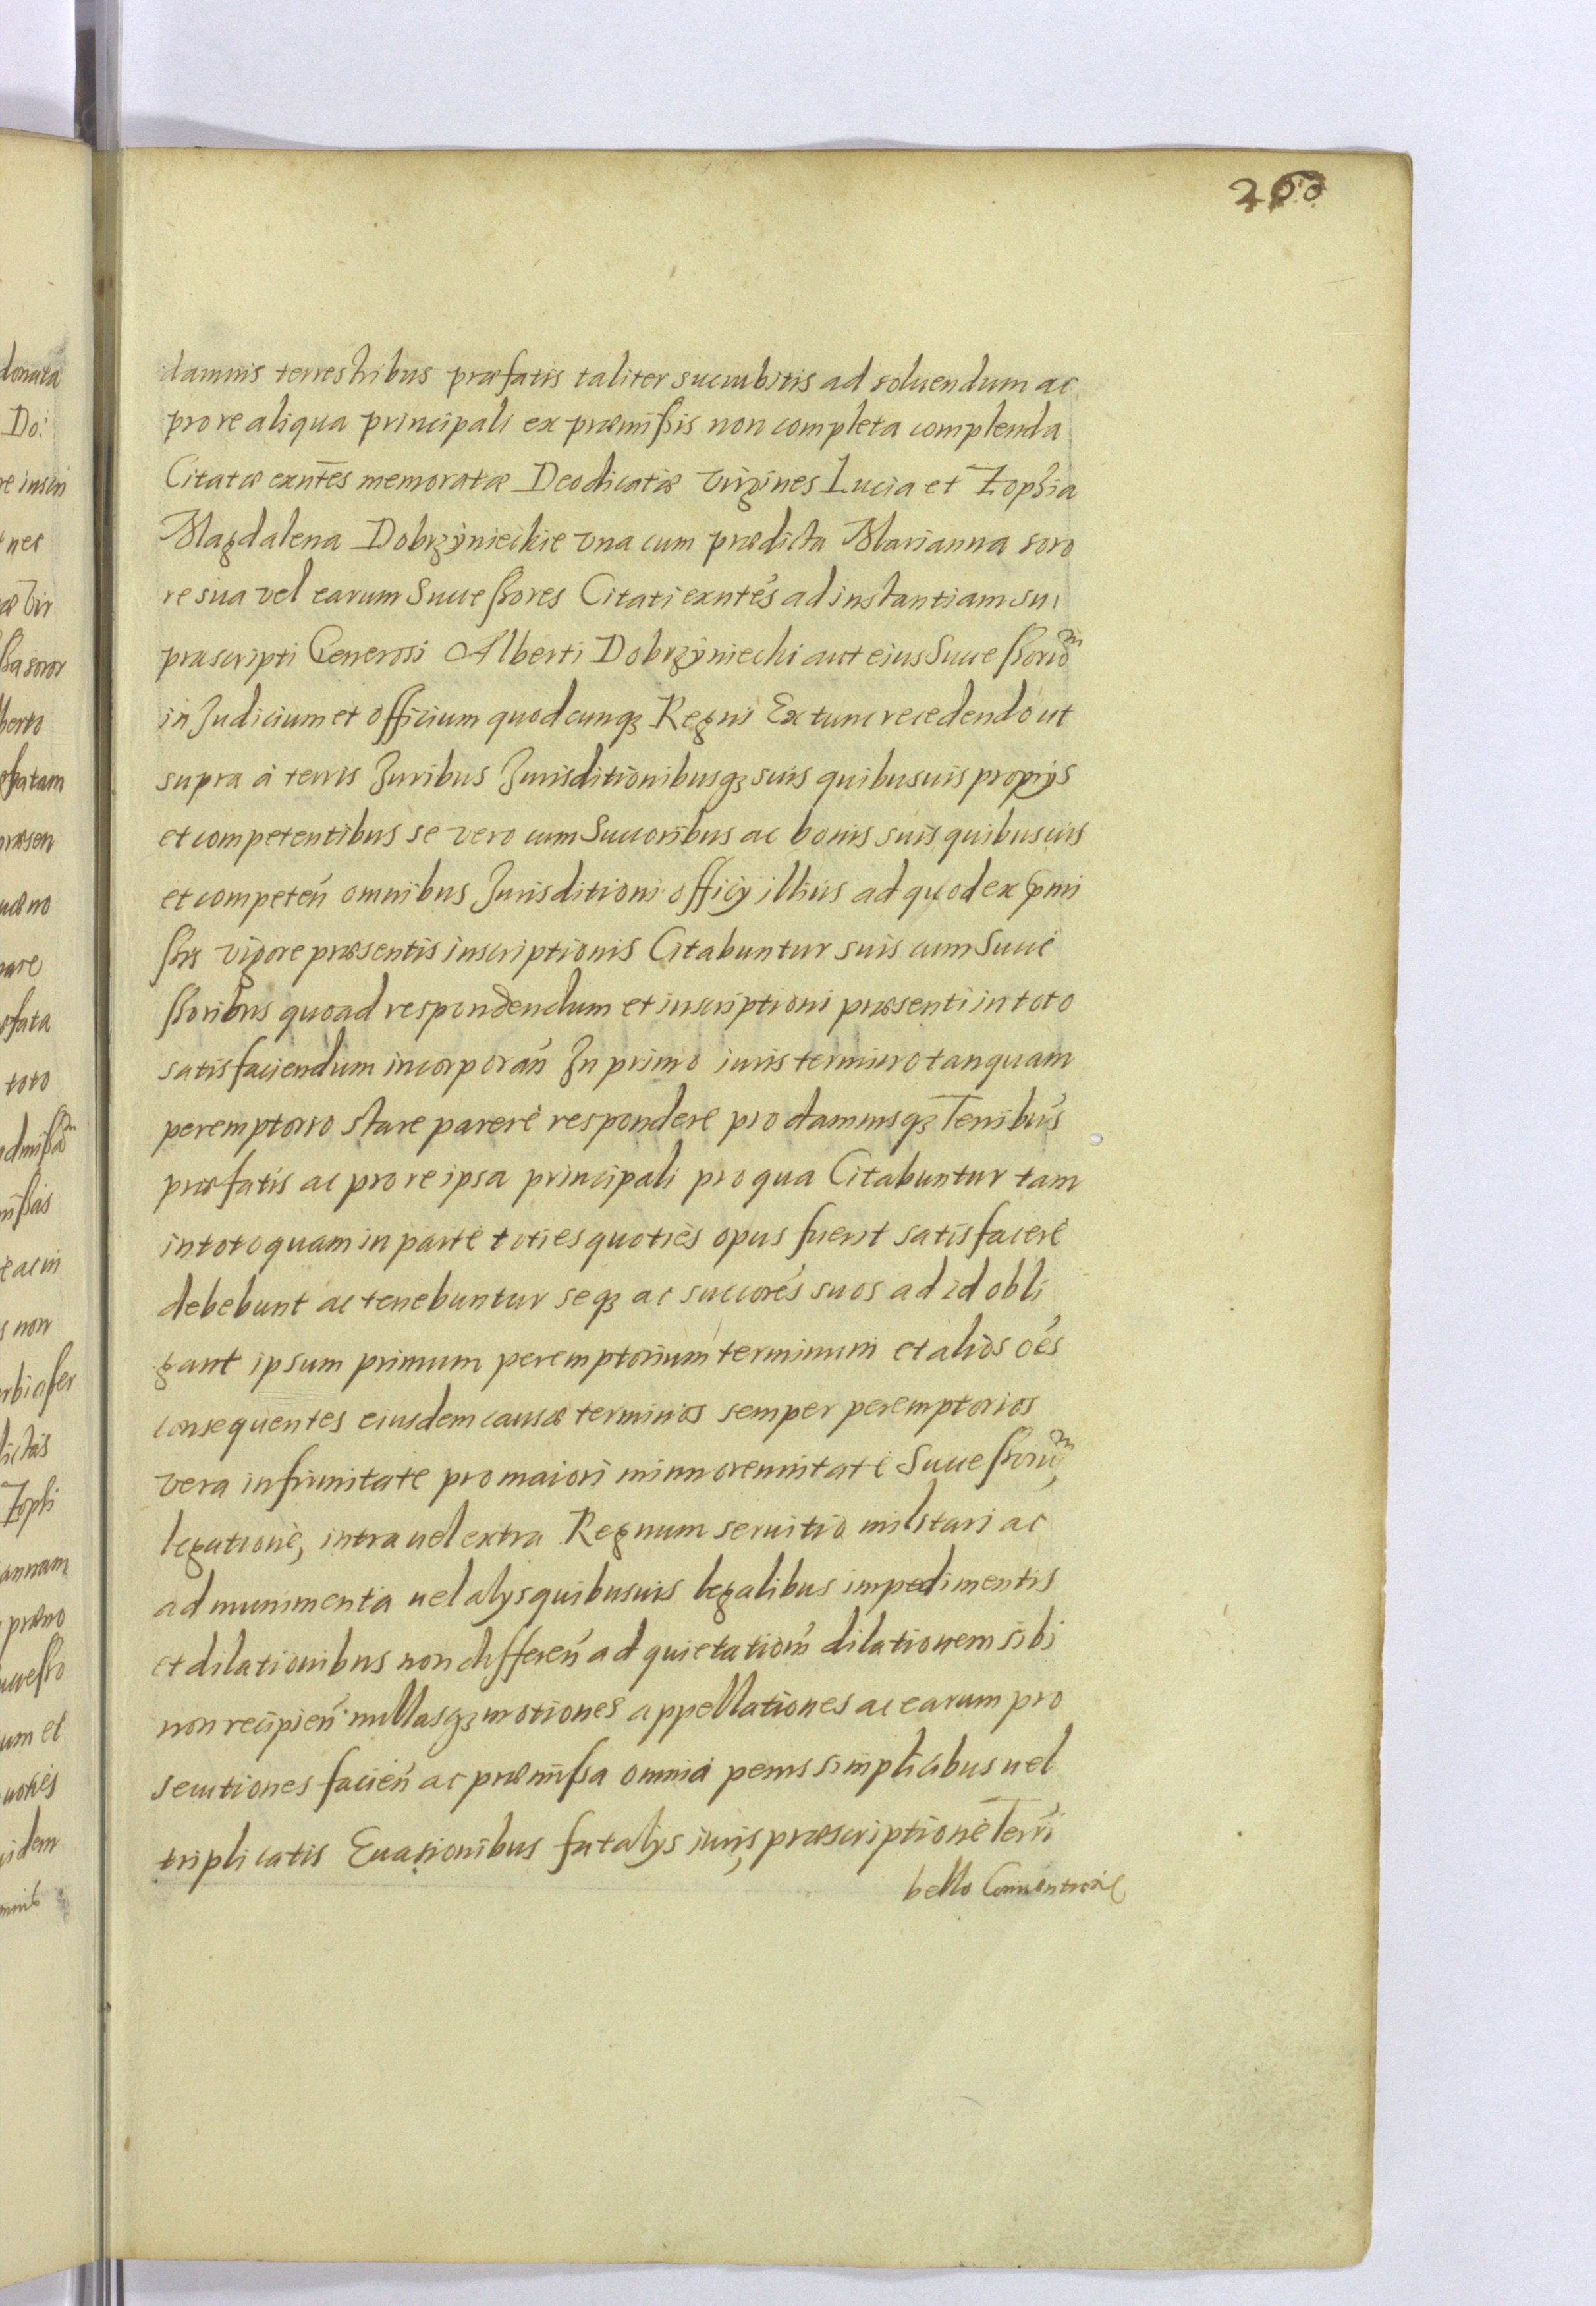 260
damnis terrestribus præfatis taliter succubitis ad soluendum ac
pro re aliqua principali ex præmißis non completa complenda
Citatæ exntes memoratæ Deodicatæ Virgines Lucia et Zophia
Magdalena Dobrzÿnieckie vna cum prædicta Marianna soro
re sua vel earum Succeßores Citati exntes ad instantiam su
præscripti Generosi Alberti Dobrzÿniecki aut eius Succeßorum
in Judicium et officium quodcunq3 Regni Ex tunc recedendo ut
supra à terris Juribus Jurisditionibusq3 suis quibusuis proprijs
et competentibus se vero cum Succoribus ac bonis suis quibusuis
et competen omnibus Jurisditioni officij illius ad quod ex pmi
ßis vigore præsentis inscriptionis Citabuntur suis cum Succe
ßoribus quoad respondendum et inscriptioni præsenti in toto
satisfaciendum incorporan In primo iuris termino tanquam
peremptorio stare parere respondere pro damnisq3 Terribus
præfatis ac pro re ipsa principali pro qua Citabuntur tam
in toto quam in parte toties quoties opus fuerit satisfacere
debebunt ac tenebuntur seq3 ac succores suos ad id obli
gant ipsum primum peremptorium terminum et alios oes
consequentes eiusdem causæ terminos semper peremptorios
vera infirmitate pro maiori minorennitate Succeßorum,
legatione, intra uel extra Regnum seruitio militari ac
ad munimenta uel alijs quibusuis legalibus impedimentis
et dilationibus non differen ad quietationem dilationem sibi
non recipien nullasq3 motiones appellationes ac earum pro
secutiones facien ac præmissa omnia penis simplicibus uel
triplicatis Euasionibus fatalijs iuris præscriptione Terri
bello
donata
Do:
nec
Vir
ßa soror
berto
præsen
fata
toto
s non
Zophi
annam
um et
uoties